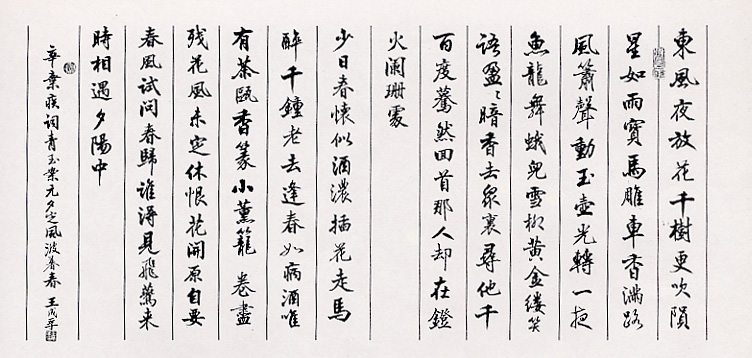 東風夜放花千樹更吹隕
星如雨寶馬雕車香滿路
風簫聲動玉壺光轉一夜
魚龍舞蛾兒雪柳黃金縷笑
語盈〻暗香去眾裏尋他千
百度驀然回首那人却在鐙
火闌珊處
少日春懷似酒濃插花走馬
醉千鐘老去逢春如病酒唯
有茶甌香篆小薰籠 卷盡
残花風未定休恨花開原自要
春風試問春歸誰得見飛鶯来
時相遇夕陽中
辛棄疾詞青玉案元夕定風波暮春 王成平